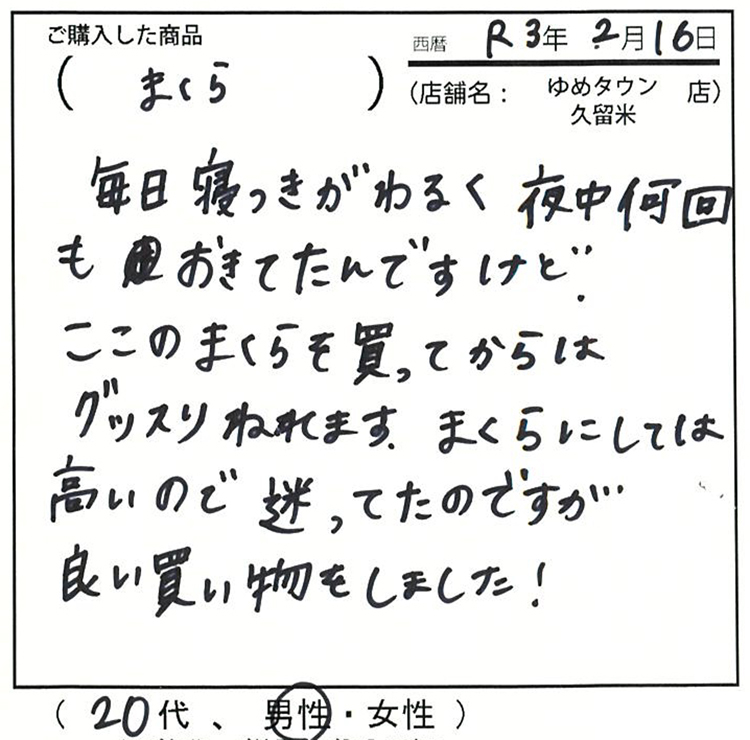 ご購入した商品
西暦 R3年 2月16日
( まくら )
(店舗名: ゆめタウン久留米 店)
毎日寝つきがわるく 夜中何回
も おきてたんですけど.
ここのまくらを買ってからは
グッスリねれます. まくらにしては
高いので 迷ってたのですが…
良い買い物をしました!
( 20代 、 男性・女性 )